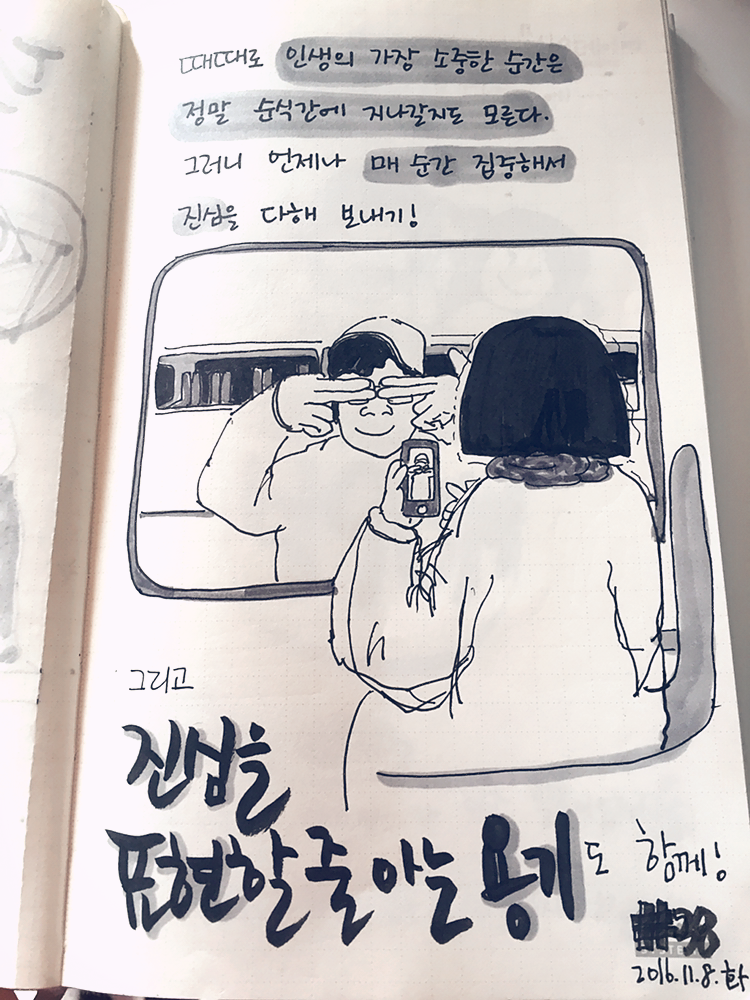 때때로 인생의 가장 소중한 순간은
정말 순식간에 지나갈지도 모른다.
그러니 언제나 매 순간 집중해서
진심을 다해 보내기!
그리고
진심을
표현할 줄 아는 용기도 함께!
#38
2016.11.8.화